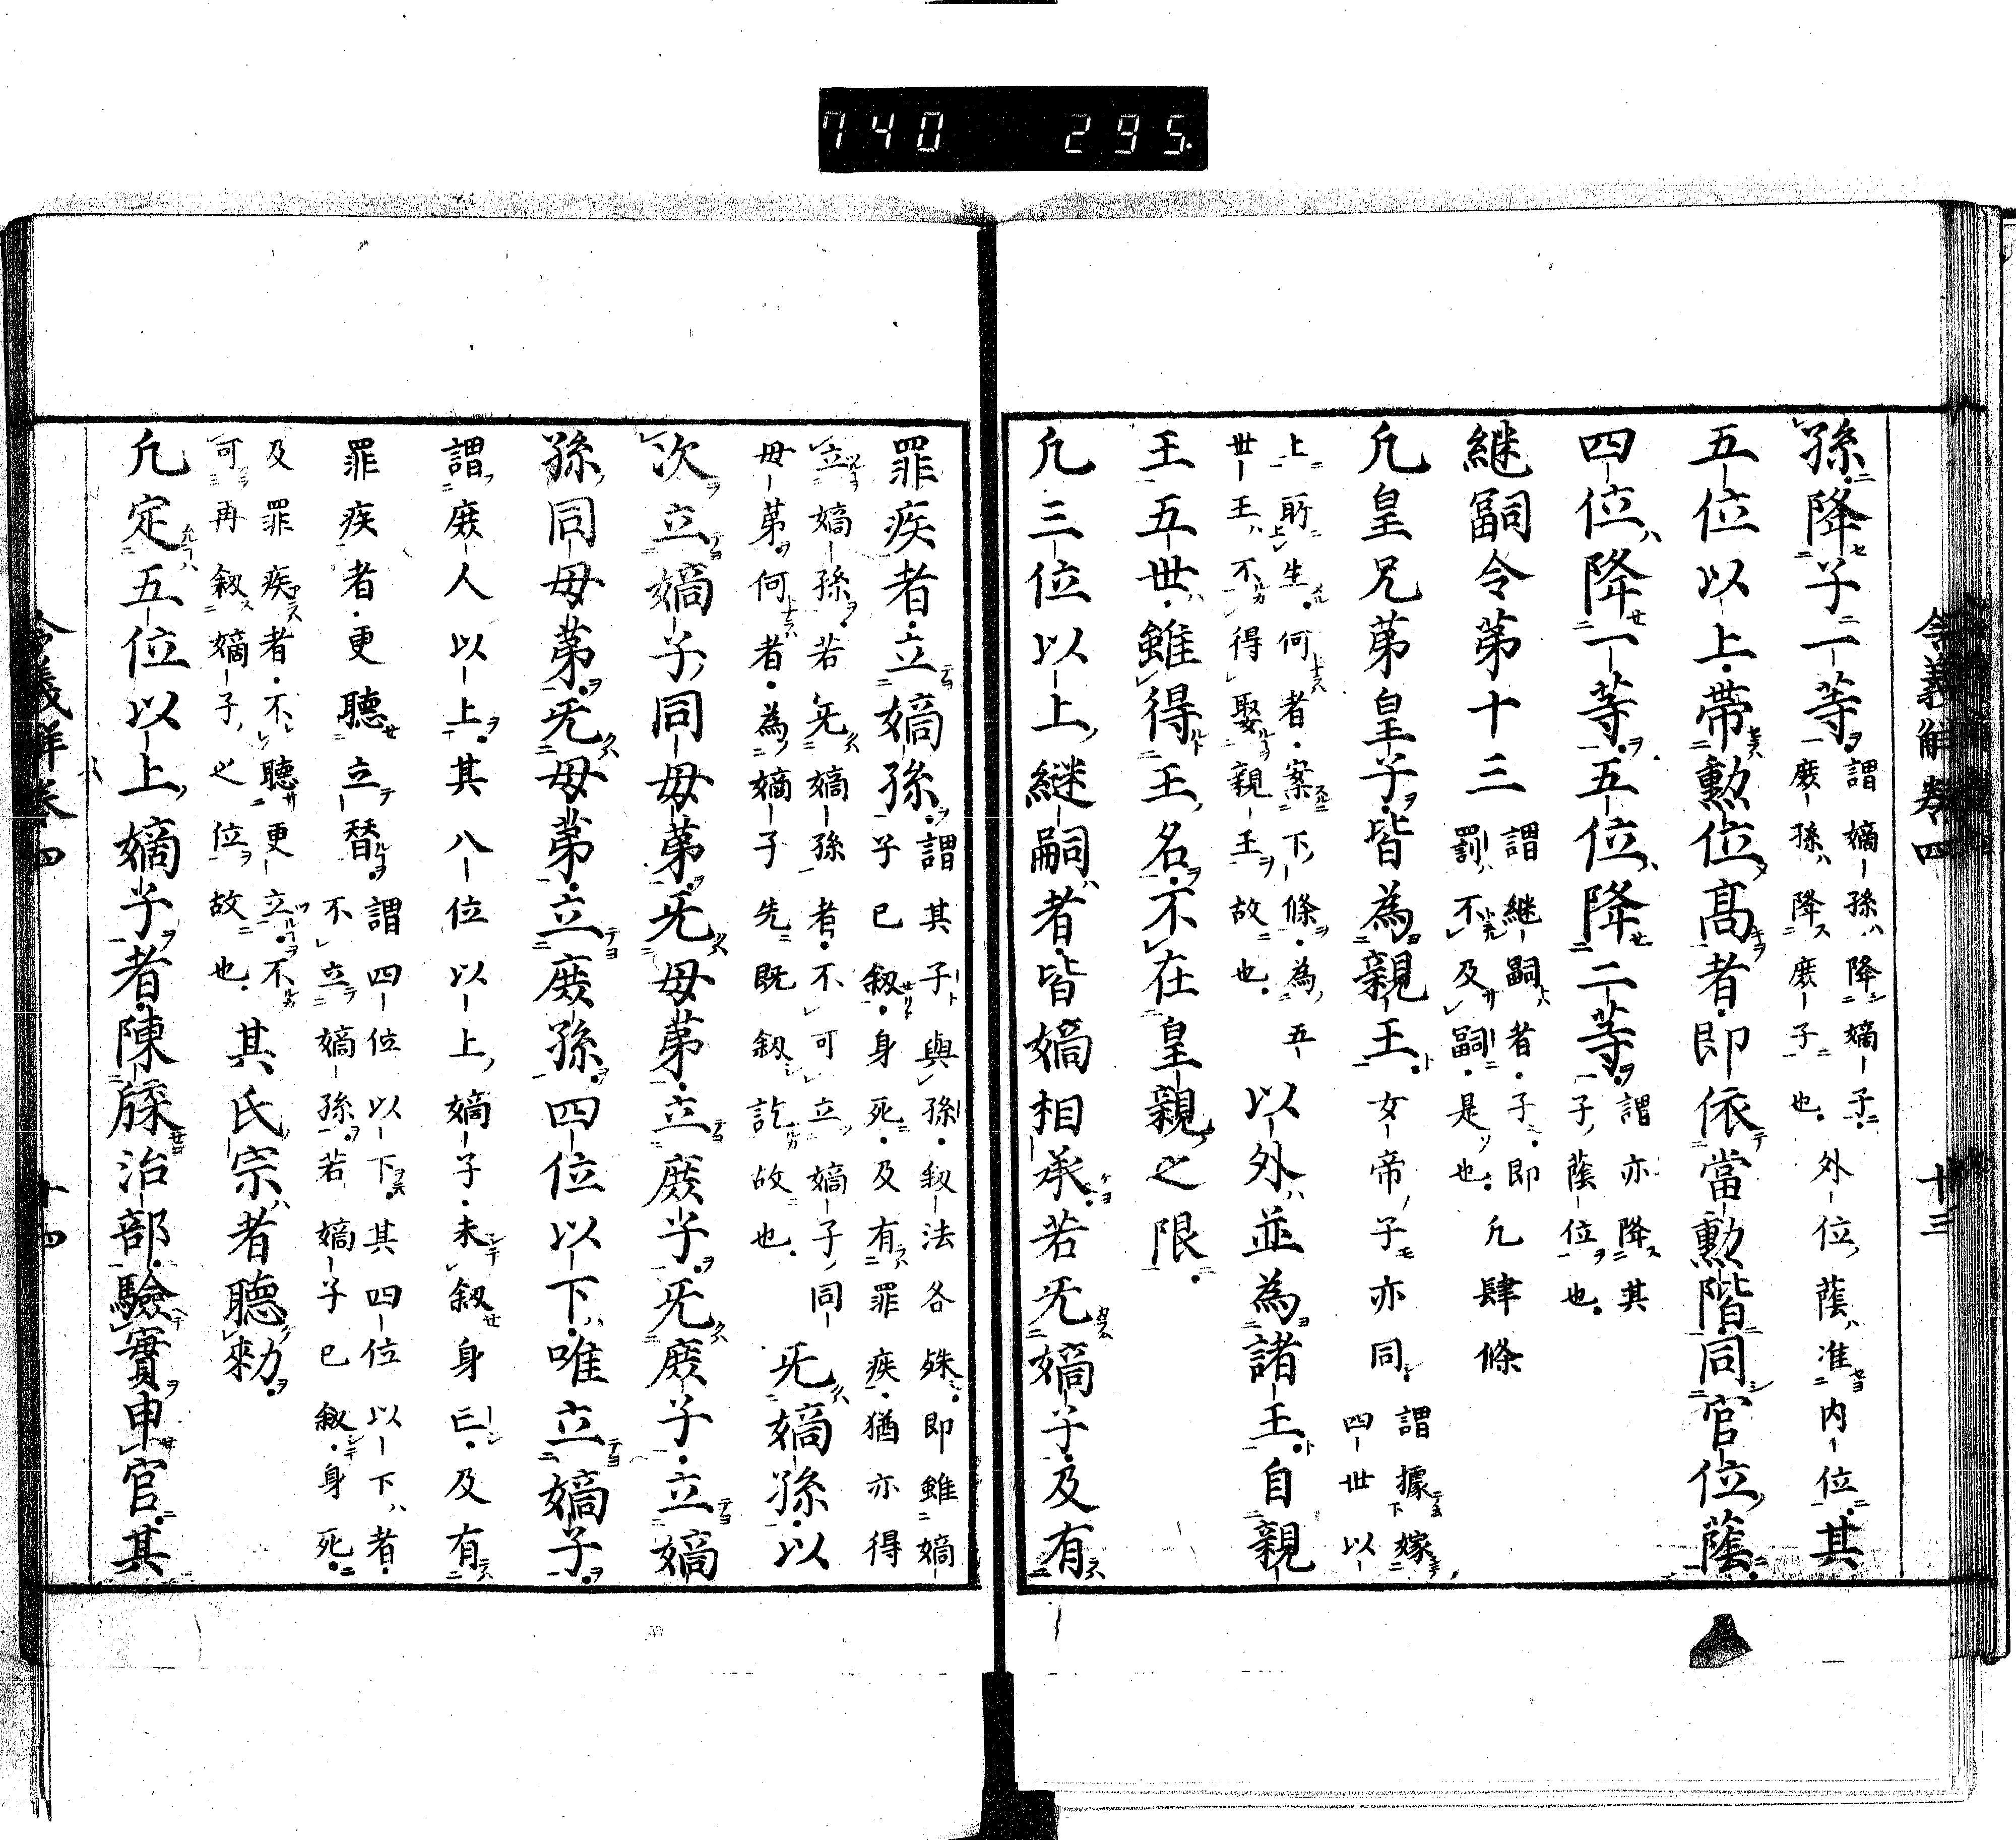 740 295
令義解卷四 十三
孫降子一等謂嫡孫降嫡子庶孫降庶子也外位蔭准内位其
五位以上帶勲位高者即依當勲階同官位蔭
四位降一等五位降二等謂亦降其子蔭位也
継嗣令第十三謂継嗣者子即罰不及嗣是也凡肆條
凡皇兄弟皇子皆為親王女帝子亦同謂據嫁四世以
上所生何者案下條為五世王不得娶親王故也以外並為諸王自親
王五世雖得王名不在皇親之限
凡三位以上継嗣者皆嫡相承若旡嫡子及有
罪疾者立嫡孫謂其子與孫叙法各殊即雖嫡子已叙身死及有罪疾猶亦得
立嫡孫若旡嫡孫者不可立嫡子同母弟何者為嫡子先既叙訖故也旡嫡孫以
次立嫡子同母弟旡母弟立庶子旡庶子立嫡
孫同母弟旡母弟立庶孫四位以下唯立嫡子
謂庶人以上其八位以上嫡子未叙身亡及有
罪疾者更聽立替謂四位以下其四位以下者不立嫡孫若嫡子已叙身死
及罪疾者不聽更立不可再叙嫡子之位故也其氏宗者聽勅
凡定五位以上嫡子者陳牒治部驗實申官其
令義解卷四 十四